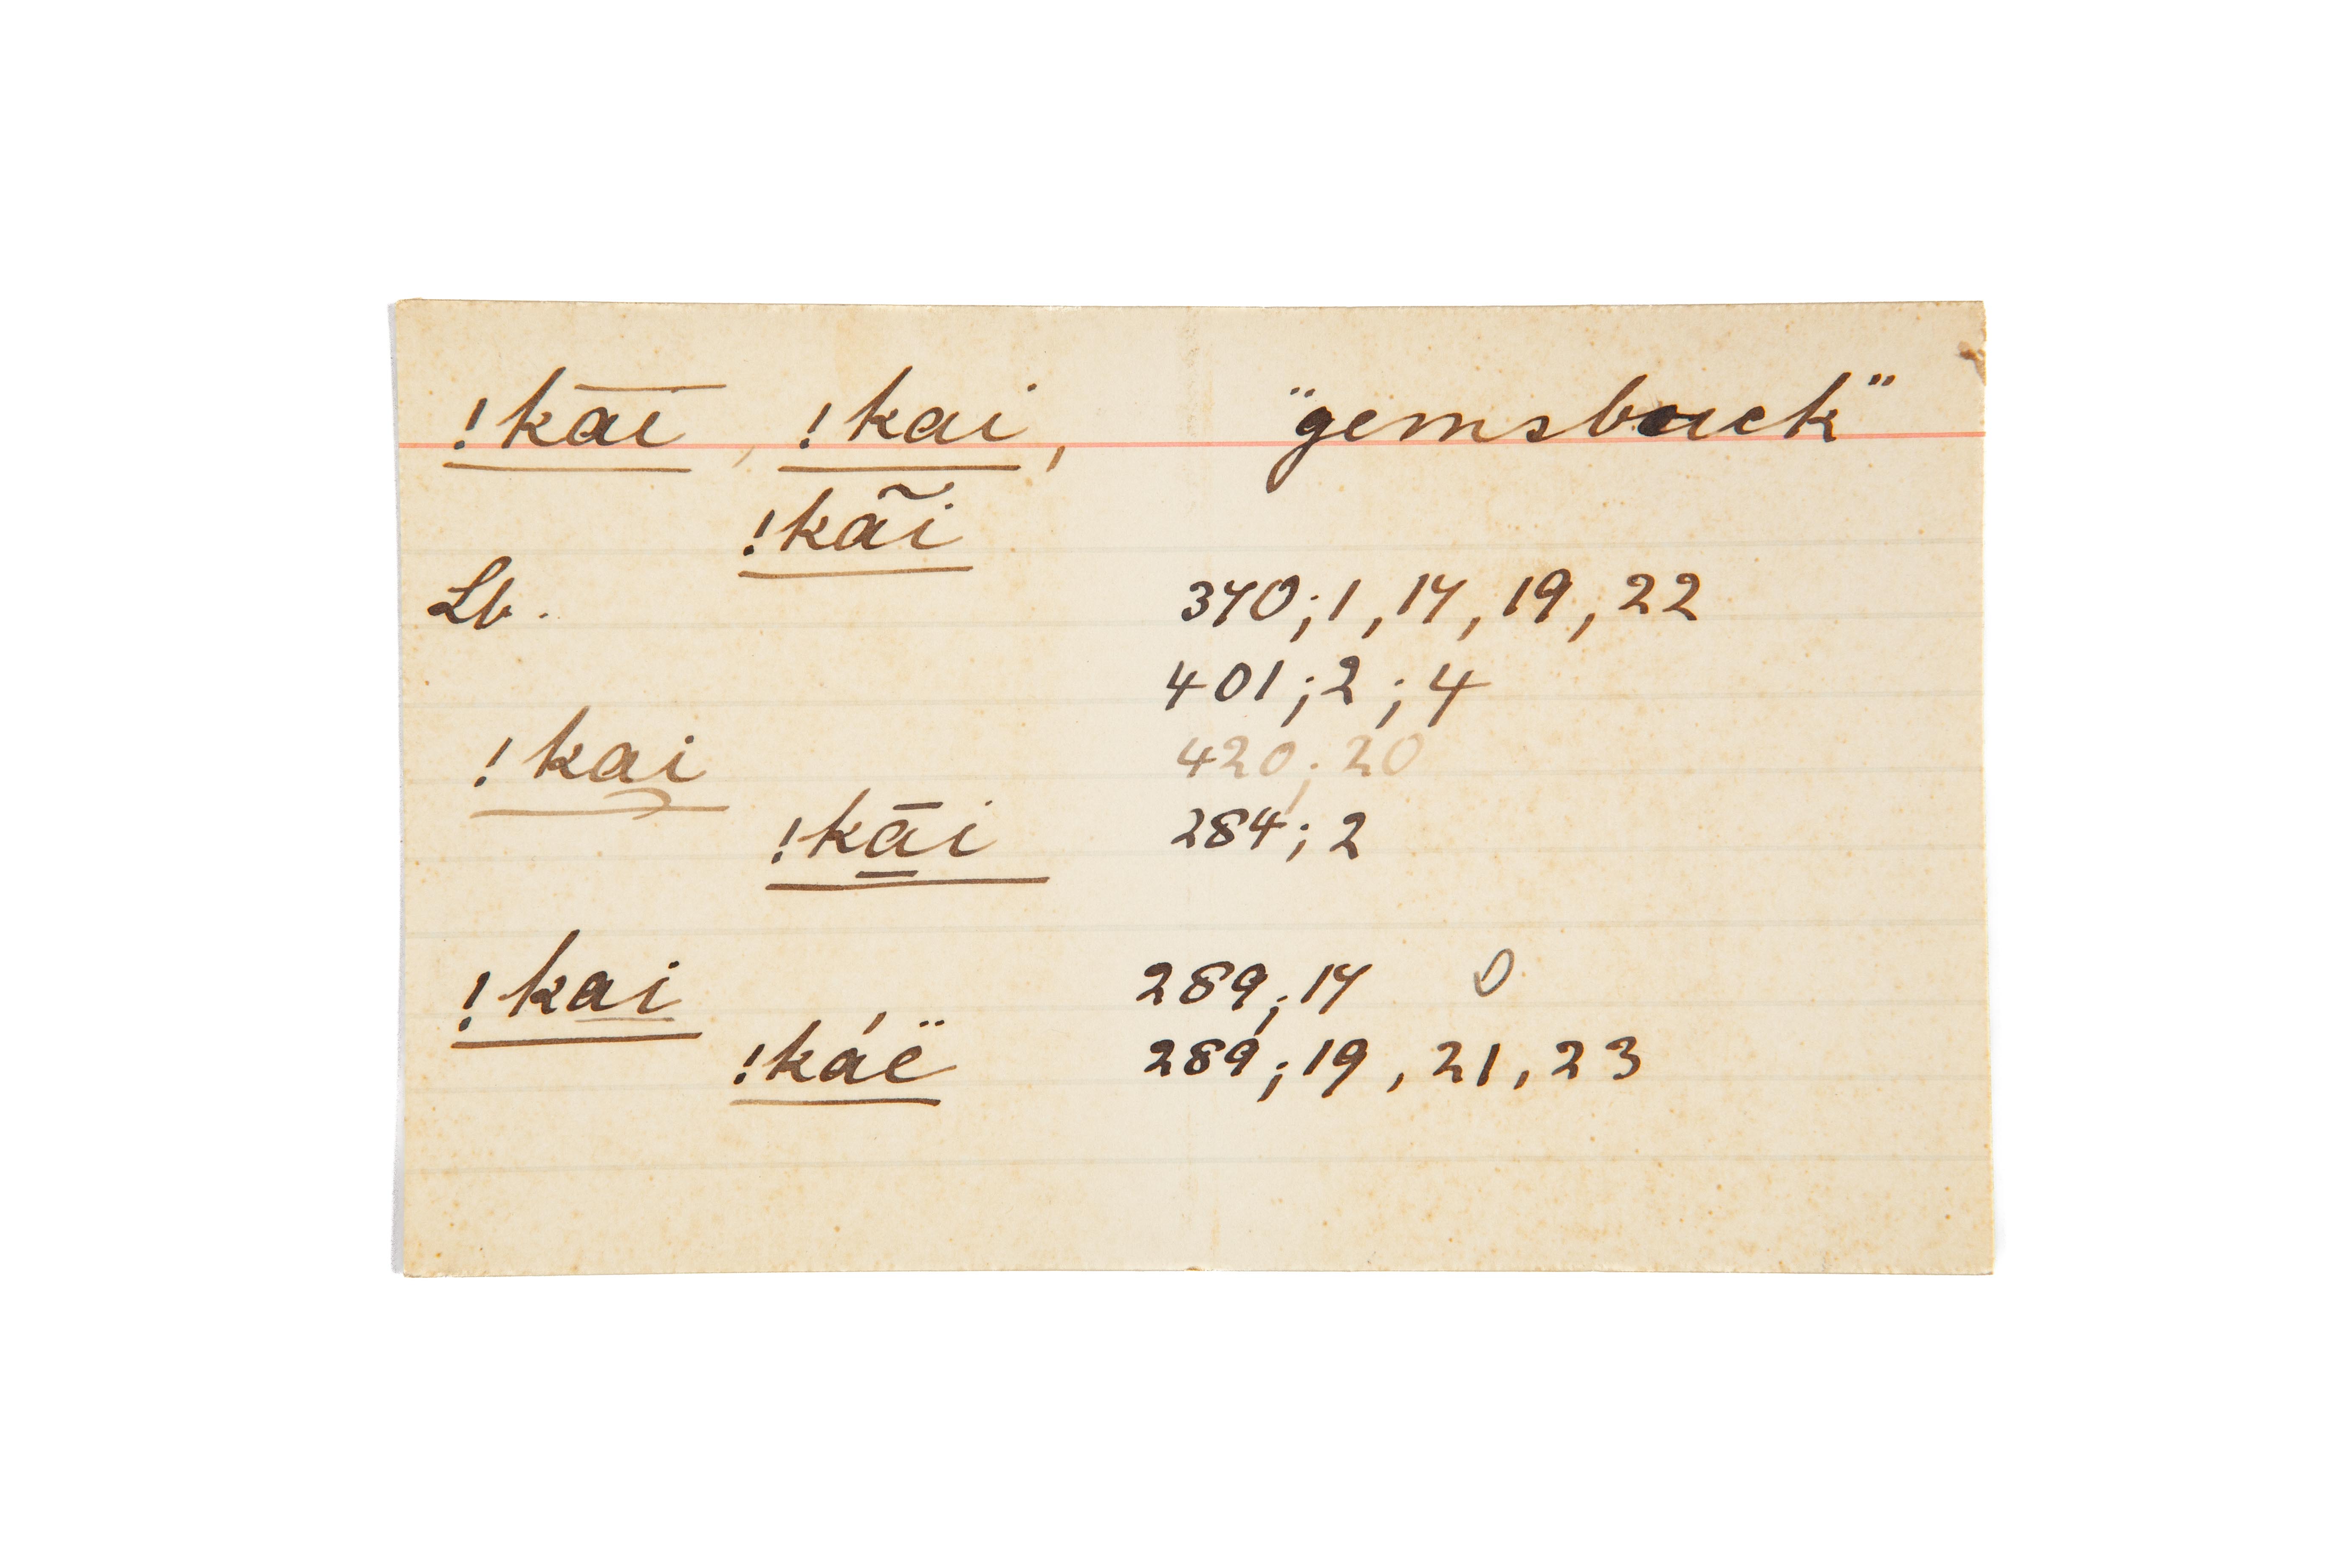 !kāī, !kai, "gemsbuck"
!kãi
Lb. 370; 1, 17, 19, 22
401; 2; 4
!kai 420; 20
!kāi 284; 2
!kai 289; 17 0
!káë 289; 19, 21, 23